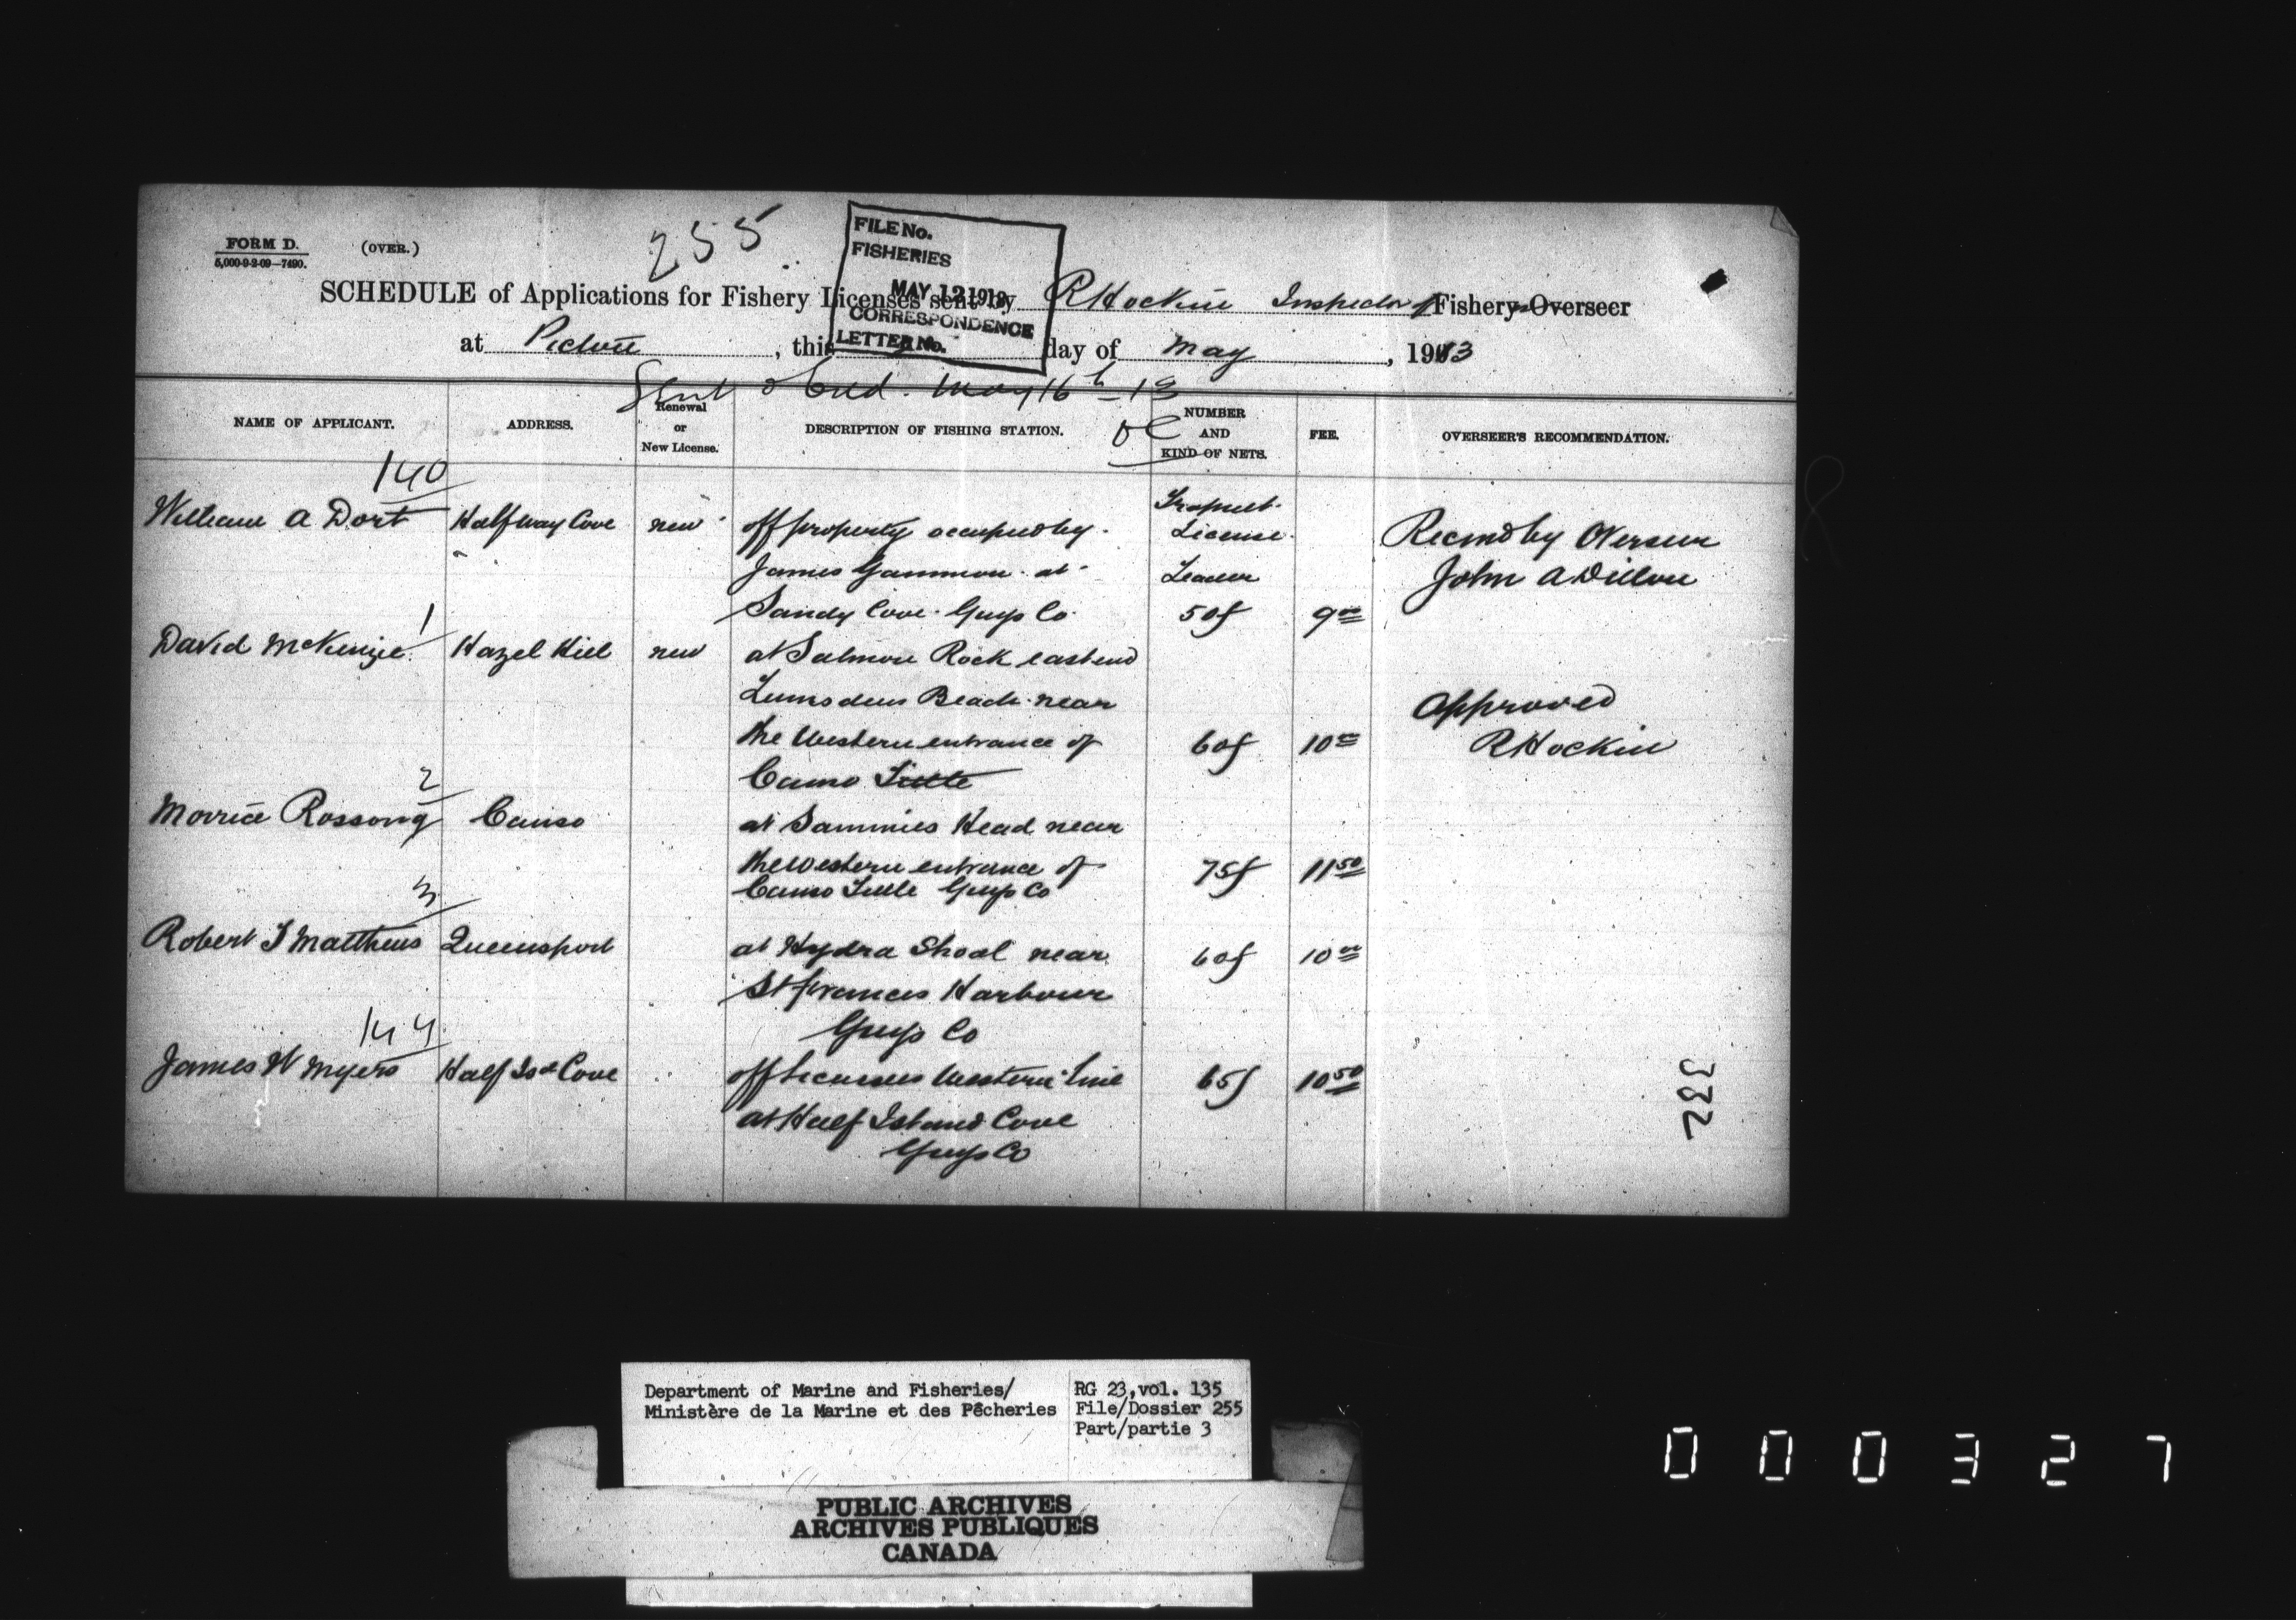 FORM D.
5,000-9-2-09—7490.
(OVER.)
255
FILE No.
FISHERIES
MAY 12 1913
CORRESPONDENCE
LETTER No.
SCHEDULE of Applications for Fishery Licenses sent by R Hockin Inspector of Fishery Overseer
at Pictou, this day of May, 1913
Sent & Ent'd. May 16th - 13
NAME OF APPLICANT.
ADDRESS.
Renewal
or
New License.
DESCRIPTION OF FISHING STATION.
NUMBER
AND
KIND OF NETS.
FEE.
OVERSEER'S RECOMMENDATION.
140
William A Dort Halfway Cove new off property occupied by Trapnet License Recmd by Overseer
James Gammon at Leader John A Dillon
Sandy Cove Guys Co 50f 9 00
1
David McKenzie Hazel Hill new at Salmon Rock east end
Lumsdens Beach near Approved
the Western entrance of 60f 10 00 R Hockin
Canso Tittle
2
Morrice Rossong Canso at Sammies Head near
the Western entrance of 75f 11 50
Canso Tittle Guys Co
3
Robert J Matthews Queensport at Hydra Shoal near 60f 10 00
St Frances Harbour
Guys Co
144
James W Myers Half Isd Cove off licensees Western line 65f 10 50
at Half Island Cove
Guys Co
332
Department of Marine and Fisheries/
Ministère de la Marine et des Pêcheries
RG 23, vol. 135
File/Dossier 255
Part/partie 3
PUBLIC ARCHIVES
ARCHIVES PUBLIQUES
CANADA
000327